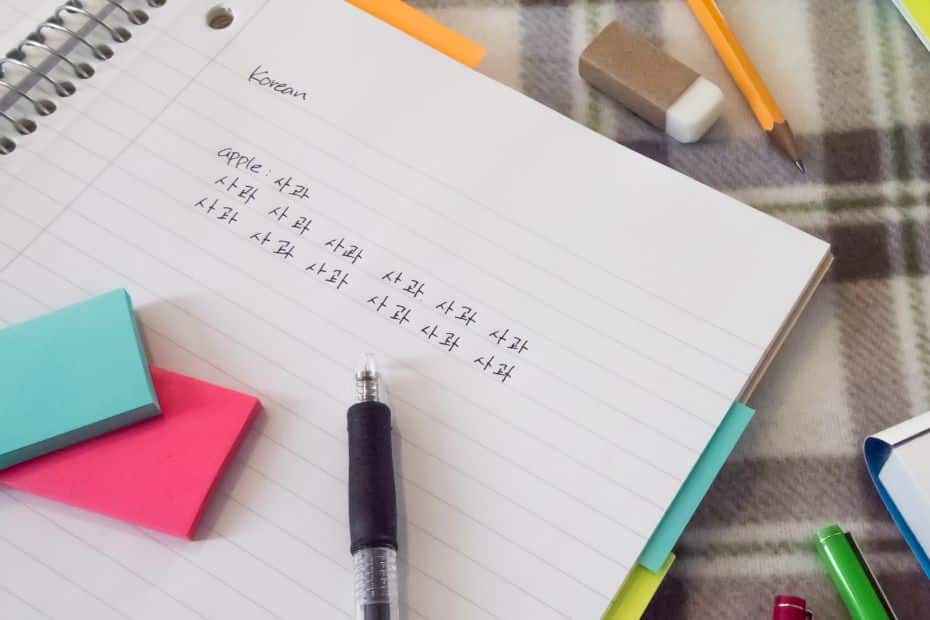 Korean
apple : 사과
사과 사과 사과 사과 사과 사과
사과 사과 사과 사과 사과 사과